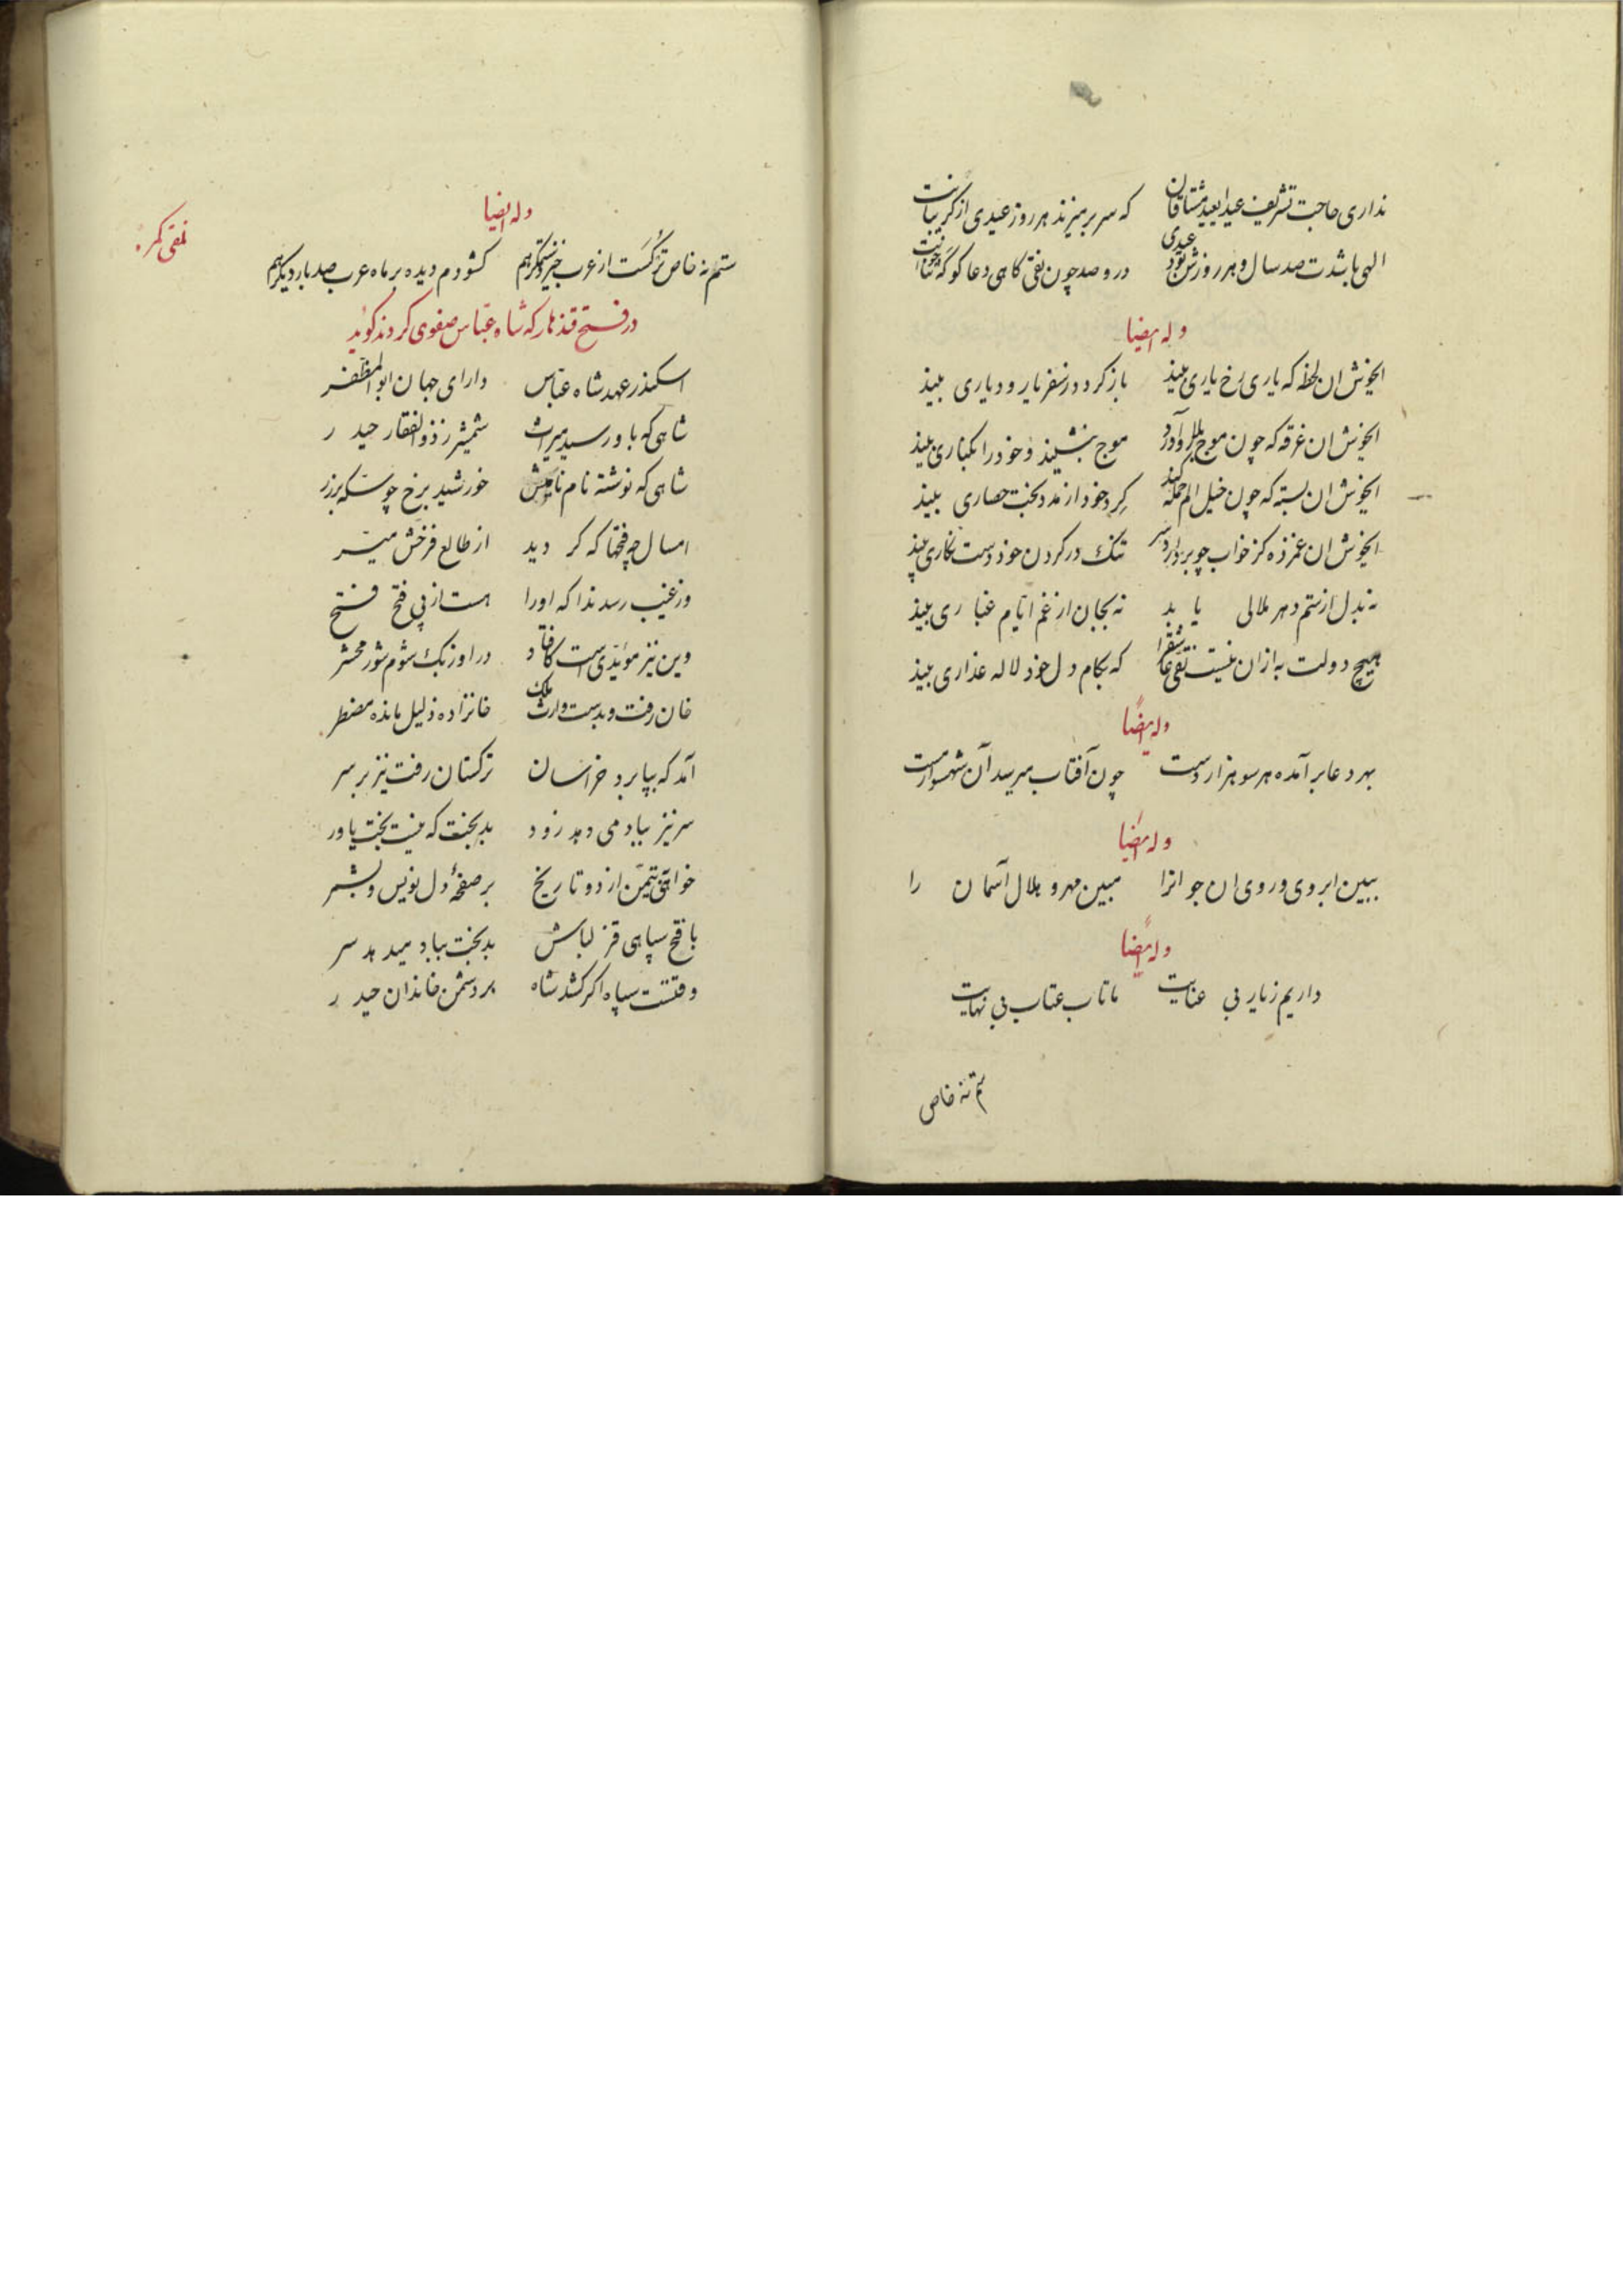 نداری حاجت تشریف عید ایعید مشتاقان که سر بر میزند هر روز عیدی از کریبانت
الهی باشدت صد سال و هر روزش بود عیدی در و صد چون نقی کاهی دعا کو که ثنا خوانت
وله ایضا
ایخوش ان لحظه که یاری رخ یاری بیند باز کردد ز سفر یار و دیاری بیند
ایخوش ان غرقه که چون موج بر آورد موج بنشیند و خود را بکناری بیند
ایخوش ان بسته که چون خیل الم حمله کند کرد خود از مدد بخت حصاری بیند
ایخوش ان غمزده کز خواب چو بردارد سر تنک در کردن خود دست نکاری بیند
نه بدل از ستم دهر ملالی یابد نه بجان از غم ایام غباری بیند
هیچ دولت به ازان نیست نقی عاشق را که بکام دل خود لاله عذاری بیند
وله ایضا
بهر دعا بر آمده هر سو هزار دست چون آفتاب میرسد آن شهسوار مست
وله ایضا
ببین ابروی و روی ان جوانرا مبین مهر و هلال آسمان را
وله ایضا
داریم ز یار بی عنایت ما تاب عتاب بی نهایت
ستم نه خاص
نقی کمر
وله ایضا
ستم نه خاص ترکست از عرب خیزد ستمکر هم کشودم دیده بر ماه عرب صد بار دیکر هم
در فتح قندهار که شاه عباس صفوی کردند کوید
اسکندر عهد شاه عباس دارای جهان ابو المظفر
شاهی که باو رسید میراث شمشیر ز ذو الفقار حیدر
شاهی که نوشته نام نامیش خورشید برخ چو سکه بر زر
امسال چه فتحها که کردید از طالع فرخش میسر
وز غیب رسد ندا که اورا هست از پی فتح فتح
وین نیز مؤیدی است کافتاد در اوزبک شوم شور محشر
خان رفت و بدست وارث ملک خانزاده ذلیل مانده مضطر
آمد که بپا برد خراسان ترکستان رفت نیز بر سر
سر نیز بباد می دهد زود بدبخت که نیست بخت یاور
خواهی تیمن از دو تاریخ بر صفحهٔ دل نویس و بشمر
با فتح سپاهی قزلباش بدبخت بباد میدهد سر
وقتست سپاه اکر کشد شاه بر دشمن خاندان حیدر